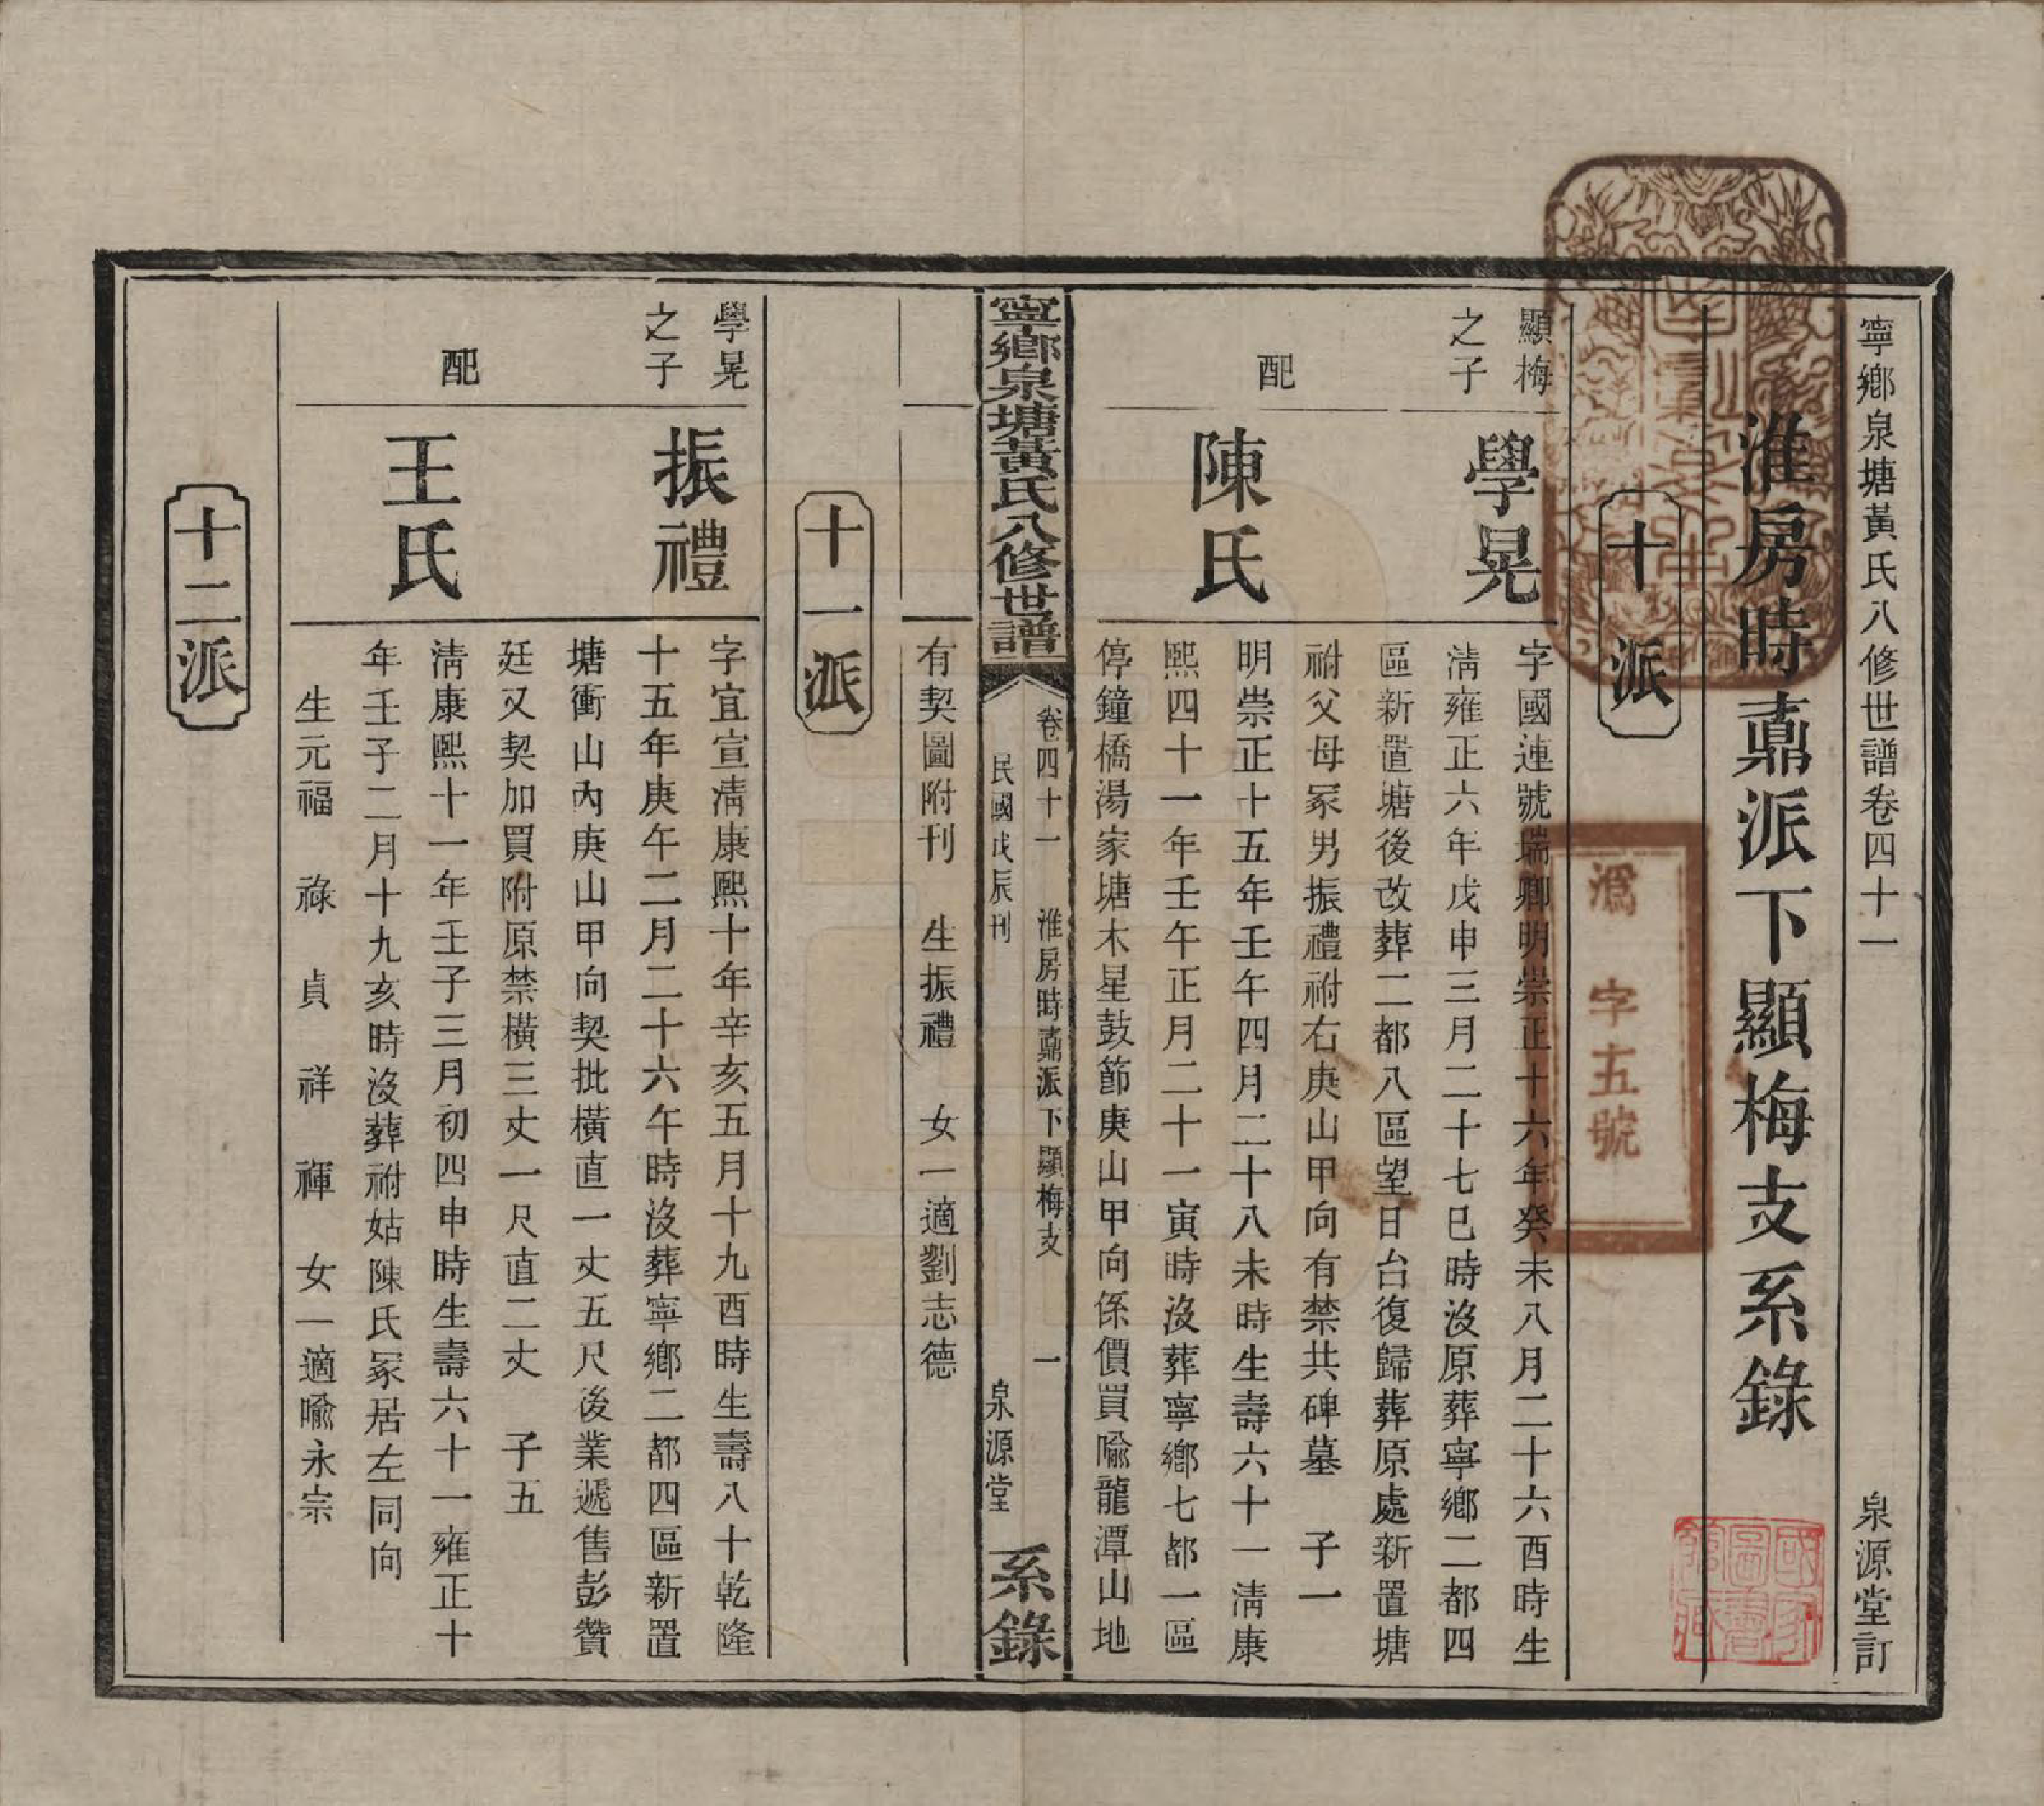 寧鄉泉塘黃氏八修世譜卷四十一
泉源堂訂
淮房時鼒派下顯梅支系錄
十派
顯梅
之子
學晃
字國連號瑞卿明崇正十六年癸未八月二十六酉時生
淸雍正六年戊申三月二十七巳時沒原葬寧鄉二都四
區新置塘後改葬二都八區望日台復歸葬原處新置塘
祔父母冢男振禮祔右庚山甲向有禁共碑墓 子一
配
陳氏
明崇正十五年壬午四月二十八未時生壽六十一淸康
熙四十一年壬午正月二十一寅時沒葬寧鄉七都一區
停鐘橋湯家塘木星鼓節庚山甲向係價買喩龍潭山地
寧鄉泉塘黃氏八修世譜
卷四十一 淮房時鼒派下顯梅支 一
民國戊辰刊
泉源堂
系錄
有契圖附刊 生振禮 女一適劉志德
十一派
學晃
之子
振禮
字宜宣淸康熙十年辛亥五月十九酉時生壽八十乾隆
十五年庚午二月二十六午時沒葬寧鄉二都四區新置
塘衝山內庚山甲向契批橫直一丈五尺後業遞售彭贊
廷又契加買附原禁橫三丈一尺直二丈 子五
配
王氏
淸康熙十一年壬子三月初四申時生壽六十一雍正十
年壬子二月十九亥時沒葬祔姑陳氏冢居左同向
生元福 祿 貞 祥 禈 女一適喩永宗
十二派
爲字五號
國家
圖書
館藏